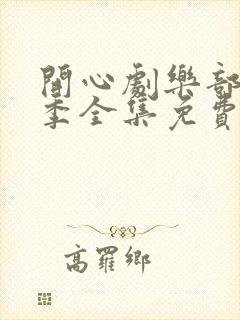 開心劇樂部
季全集免費
高羅鄉